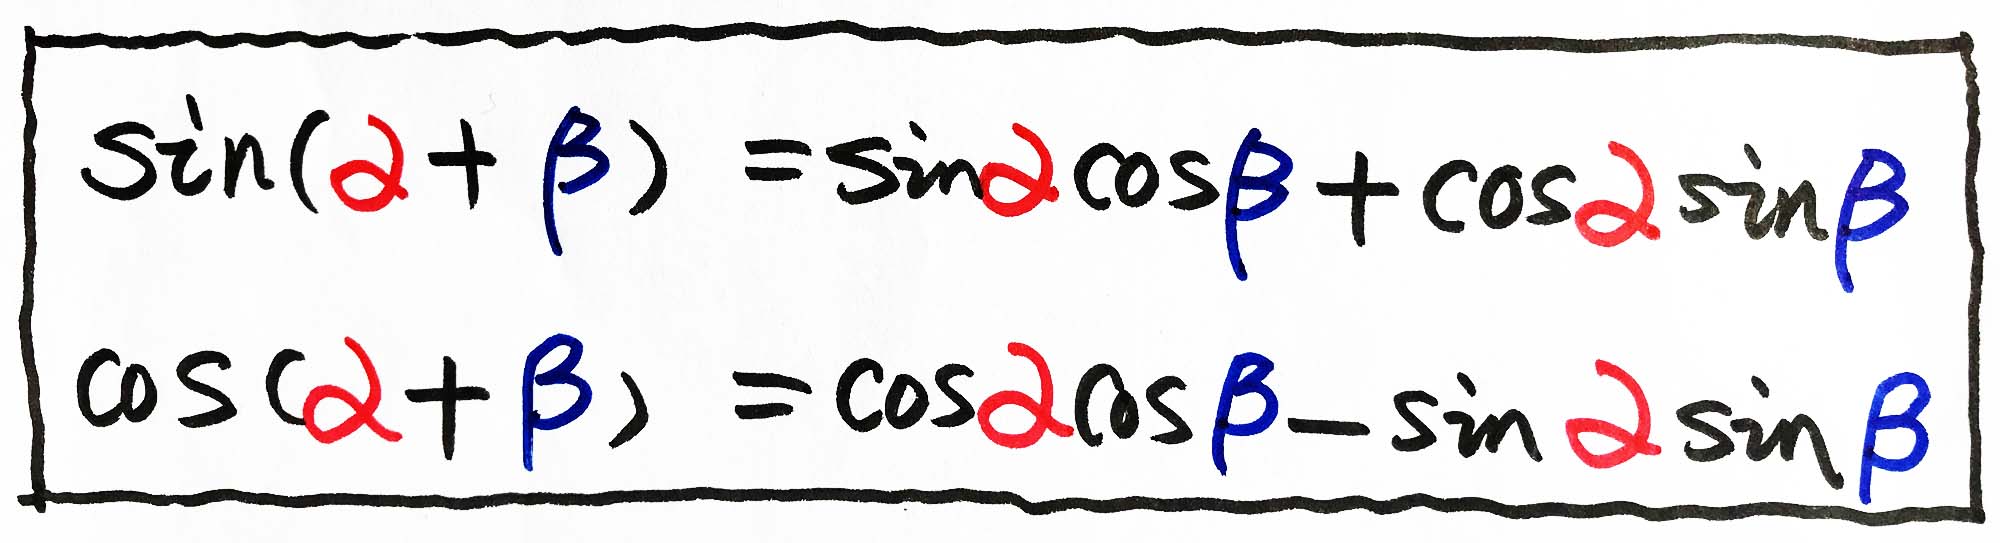 sin(α + β) = sinα cosβ + cosα sinβ
cos(α + β) = cosα cosβ - sin α sin β